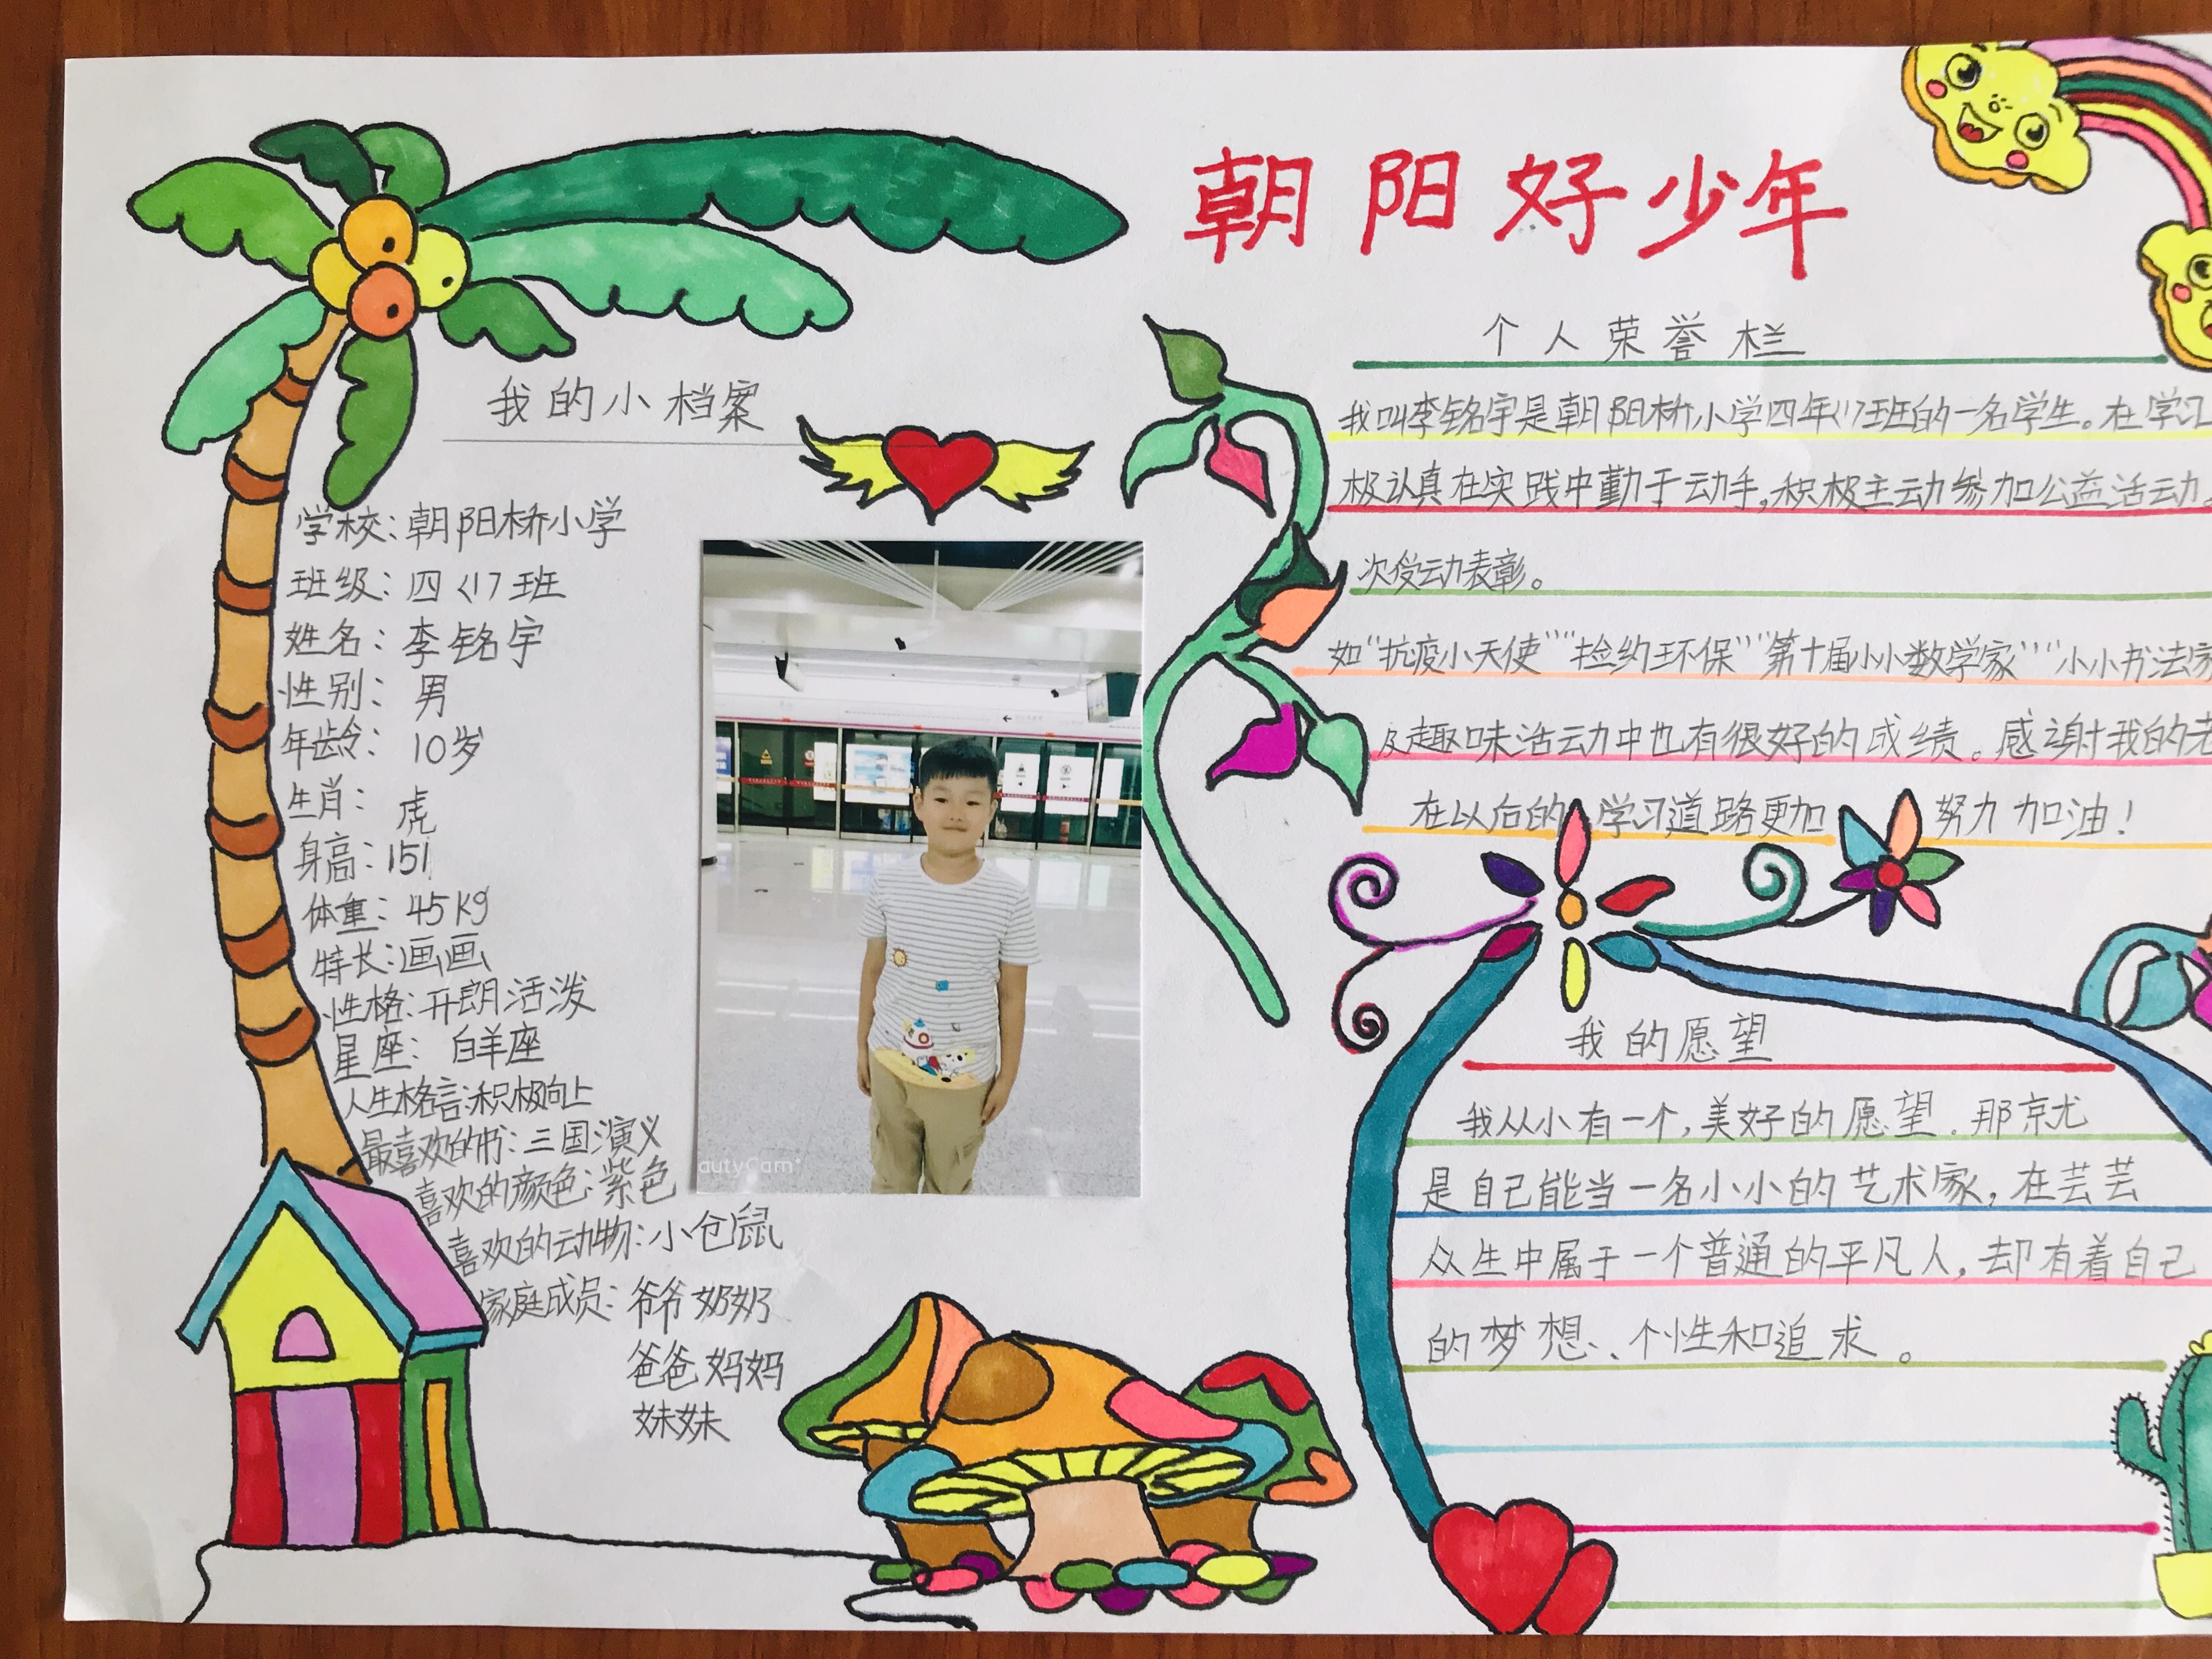 朝阳好少年
我的小档案
学校：朝阳桥小学
班级：四〈1〉班
姓名：李铭宇
性别：男
年龄：10岁
生肖：虎
身高：151
体重：45Kg
特长：画画
性格：开朗活泼
星座：白羊座
人生格言：积极向上
最喜欢的书：三国演义
喜欢的颜色：紫色
喜欢的动物：小仓鼠
家庭成员：爷爷奶奶
爸爸妈妈
妹妹
autyCam
个人荣誉栏
我叫李铭宇是朝阳桥小学四年〈1〉班的一名学生。在学习
极认真在实践中勤于动手，积极主动参加公益活动，
次受动表彰。
如“抗疫小天使”“捡约环保”“第十届小小数学家”“小小书法家
及趣味活动中也有很好的成绩。感谢我的老
在以后的学习道路更加努力加油！
我的愿望
我从小有一个，美好的愿望．那京尤
是自己能当一名小小的艺术家，在芸芸
众生中属于一个普通的平凡人，却有着自己
的梦想、个性和追求。